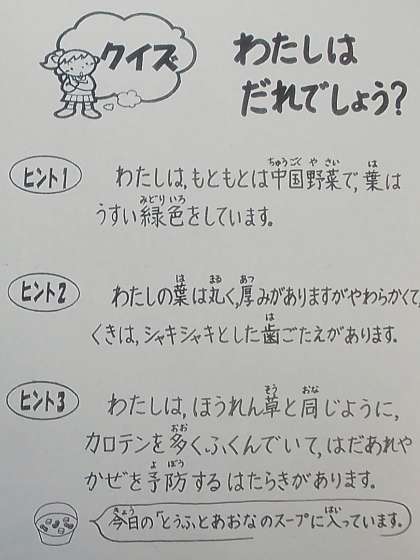 クイズ
わたしは
だれでしょう?
ヒント1 わたしは,もともとは中国野菜で,葉は
うすい緑色をしています。
ヒント2 わたしの葉は丸く,厚みがありますがやわらかくて,
くきは,シャキシャキとした歯ごたえがあります。
ヒント3 わたしは,ほうれん草と同じように,
カロテンを多くふくんでいて,はだあれや
かぜを予防するはたらきがあります。
今日の「とうふとあおなのスープに入っています。